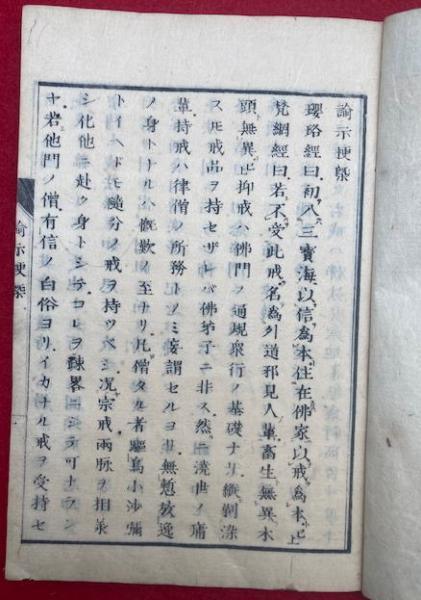 諭示梗槩
瓔珞經曰初入三寶海以信為本住在佛家以戒為本已上
梵網經曰若不受此戒名為外道邪見人輩畜生無異木
頭無異已上抑戒ハ佛門ノ通規衆行ノ基礎ナリ纔剃染
スレ𪜈戒品ヲ持セザレバ佛弟子ニ非ス然ニ澆世ノ庸
輩持戒ハ律僧ノ所務トノミ妄謂セルヨリ無慙放逸
ノ身トナルハ慨歎ノ至ナリ凡僧タル者驅烏小沙彌
トイヘドモ隨分ノ戒ヲ持ツベシ况宗戒兩脉ヲ相承
シ化他ニ赴ク身トシテコレヲ疎畧ニシテ可ナラン
ヤ若他門ノ僧有信ノ白俗ヨリイカナル戒ヲ受持セ
諭示梗槩